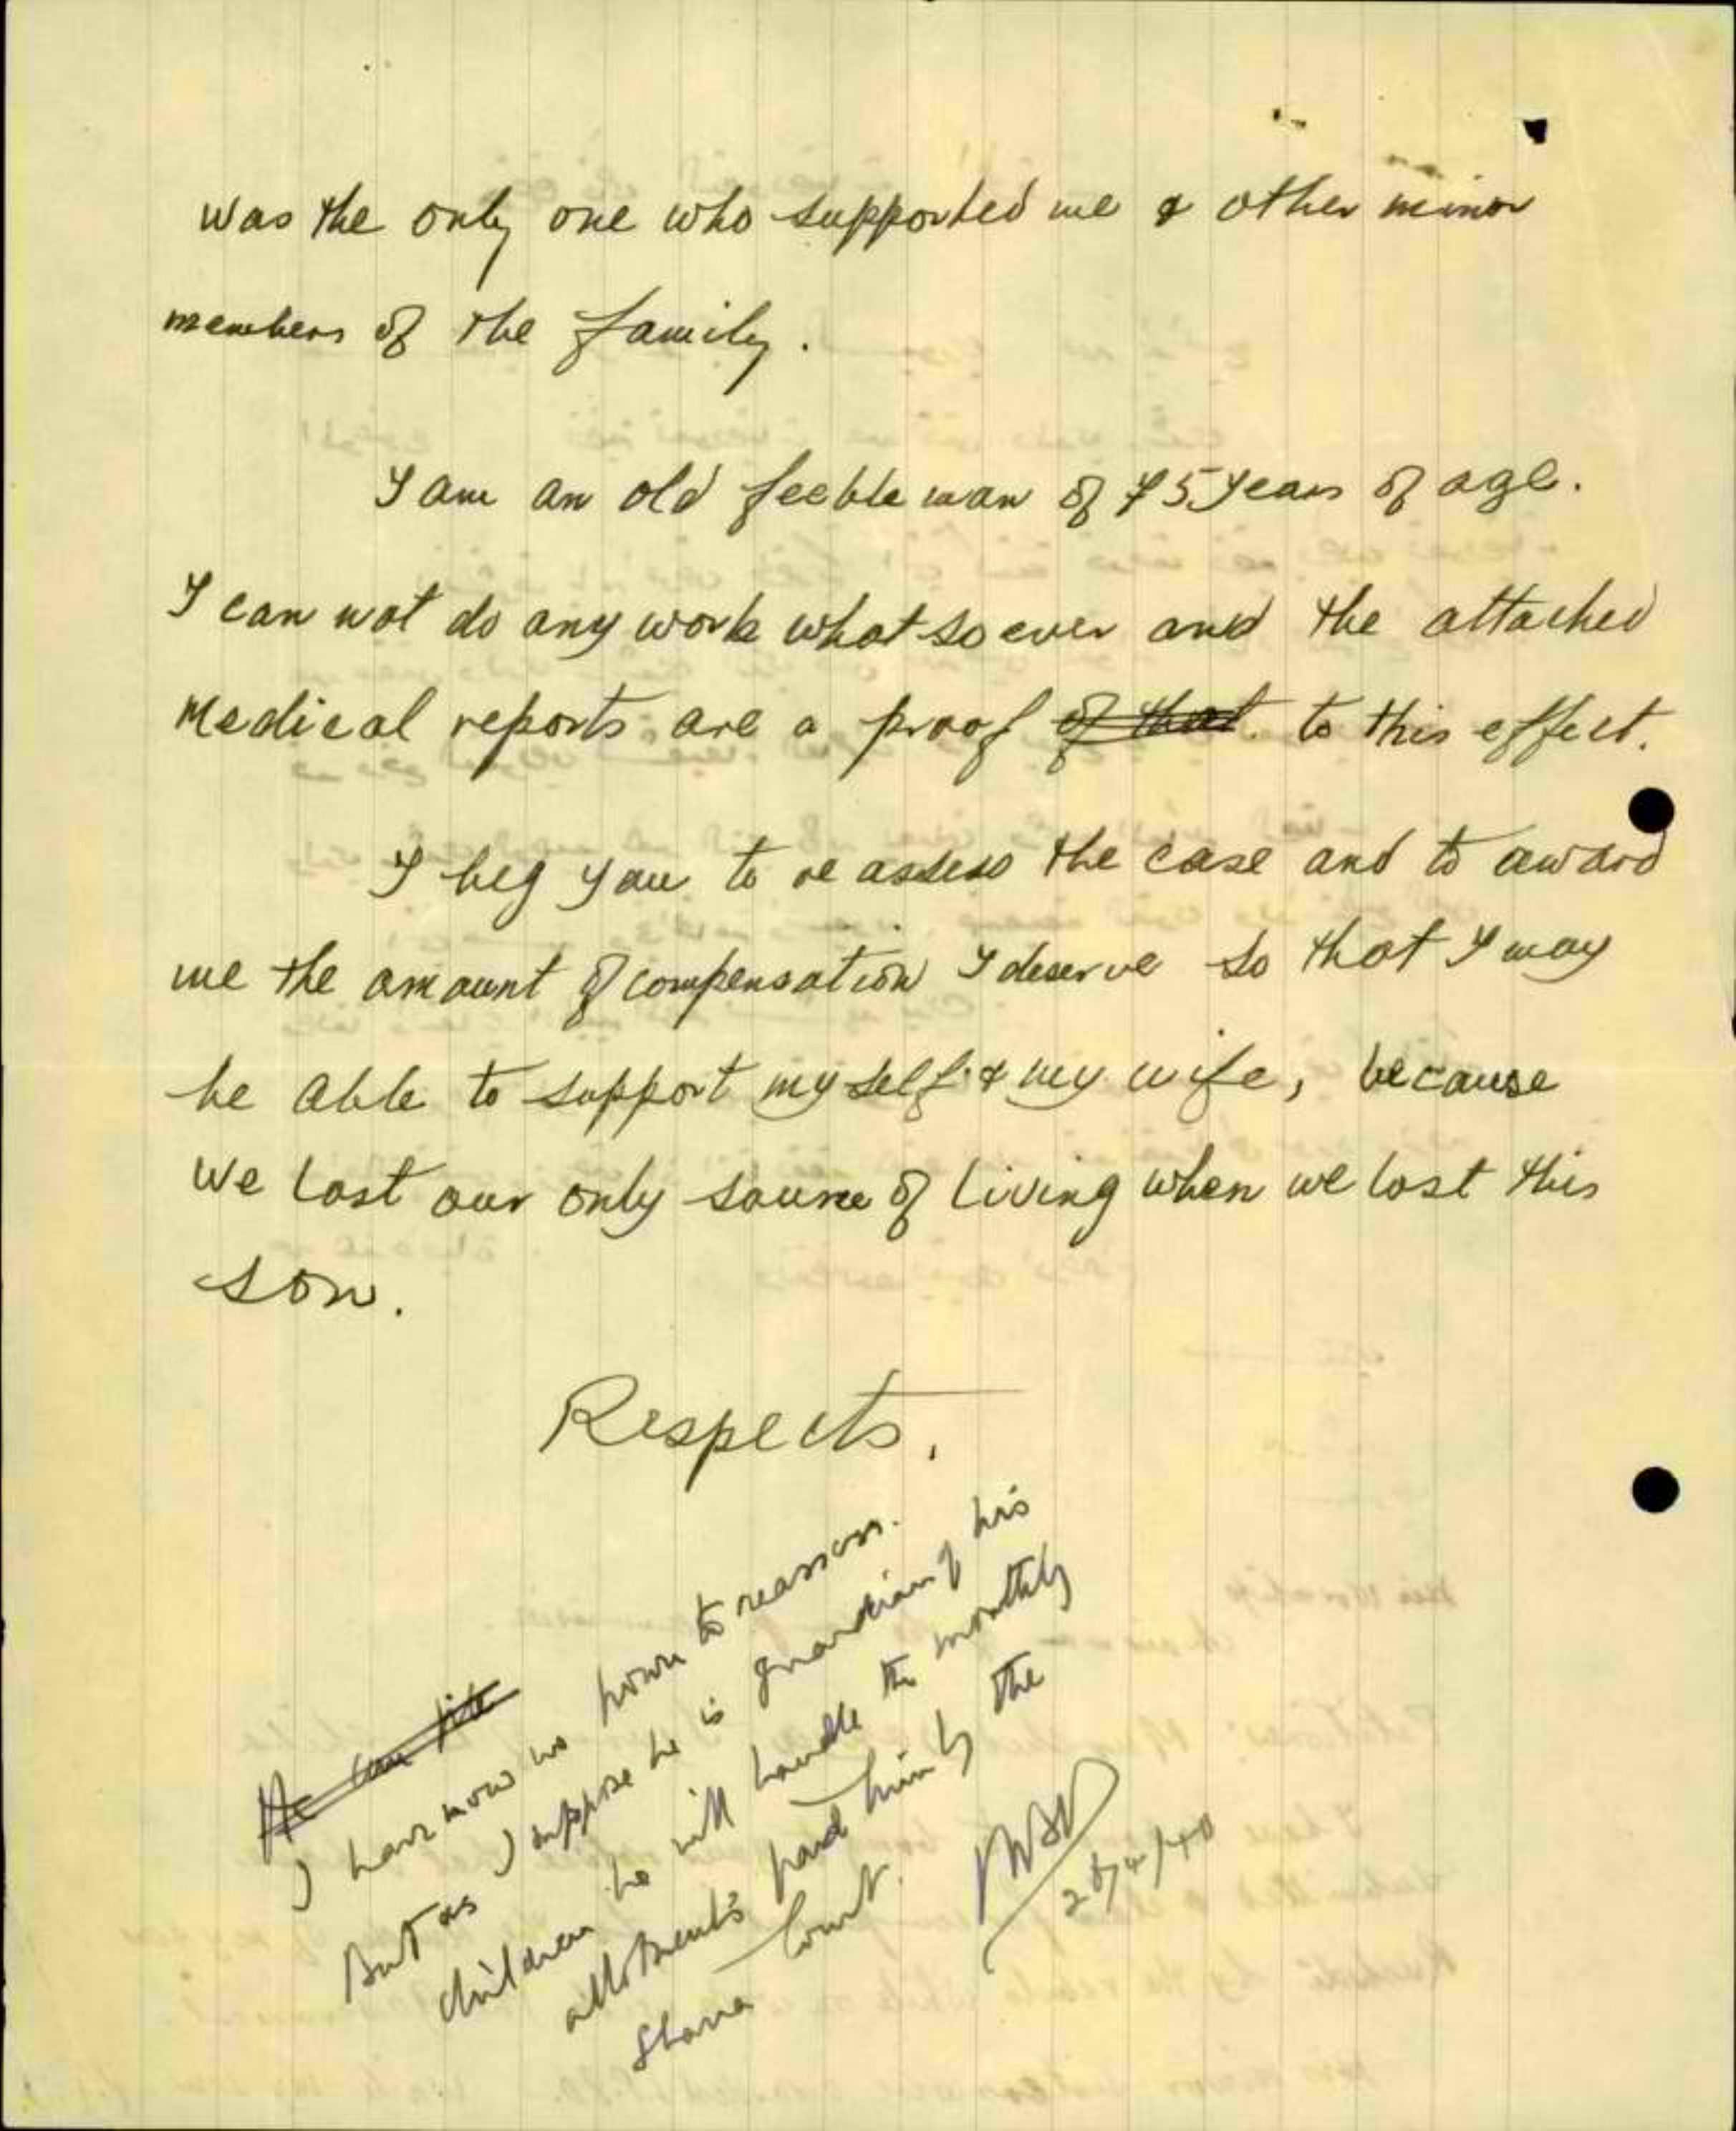 was the only one who supported me & other minor
members of the family.
I am an old feeble man of 75 years of age.
I can not do any work what so ever and the attached
Medical reports are a proof of that. to this effect.
I beg you to re assess the case and to award
me the amount of compensation I deserve so that I may
be able to support my self & my wife, because
we lost our only source of living when we lost this
son.
Respects,
He can
I have now no power to reassess.
But as I suppose he is guardian of his
children he will handle the monthly
allotments paid him by the
Sharia Court.
28/4/40